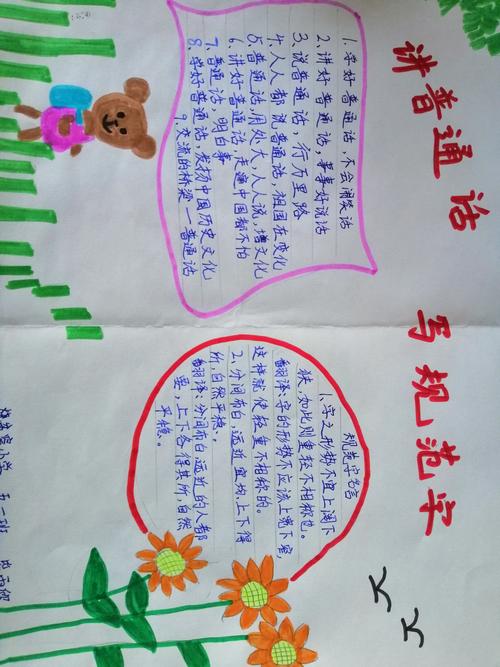 讲普通话 写规范字
1. 学好普通话,不会闹笑话
2. 讲好普通话,事事好说话
3. 说普通话,行万里路
4. 人人都说普通话,祖国在变化
5 普通话用处大,人人说,增文化
6. 讲好普通话,走遍中国都不怕
7. 普通话,明白事
8. 学好普通话,发扬中国历史文化
9. 交流的桥梁——普通话
规范字名言
1.字之形势不宜上阔下
狭,如此则重轻不相称也。
翻译:字的形势不应该上宽下窄,
这样就使轻重不相称的。
2、分间布白,远近宜均,上下得
所,自然平稳。
翻译:分间布白远近的人都
要,上下各得其所,自然
平稳。
小学 五二班